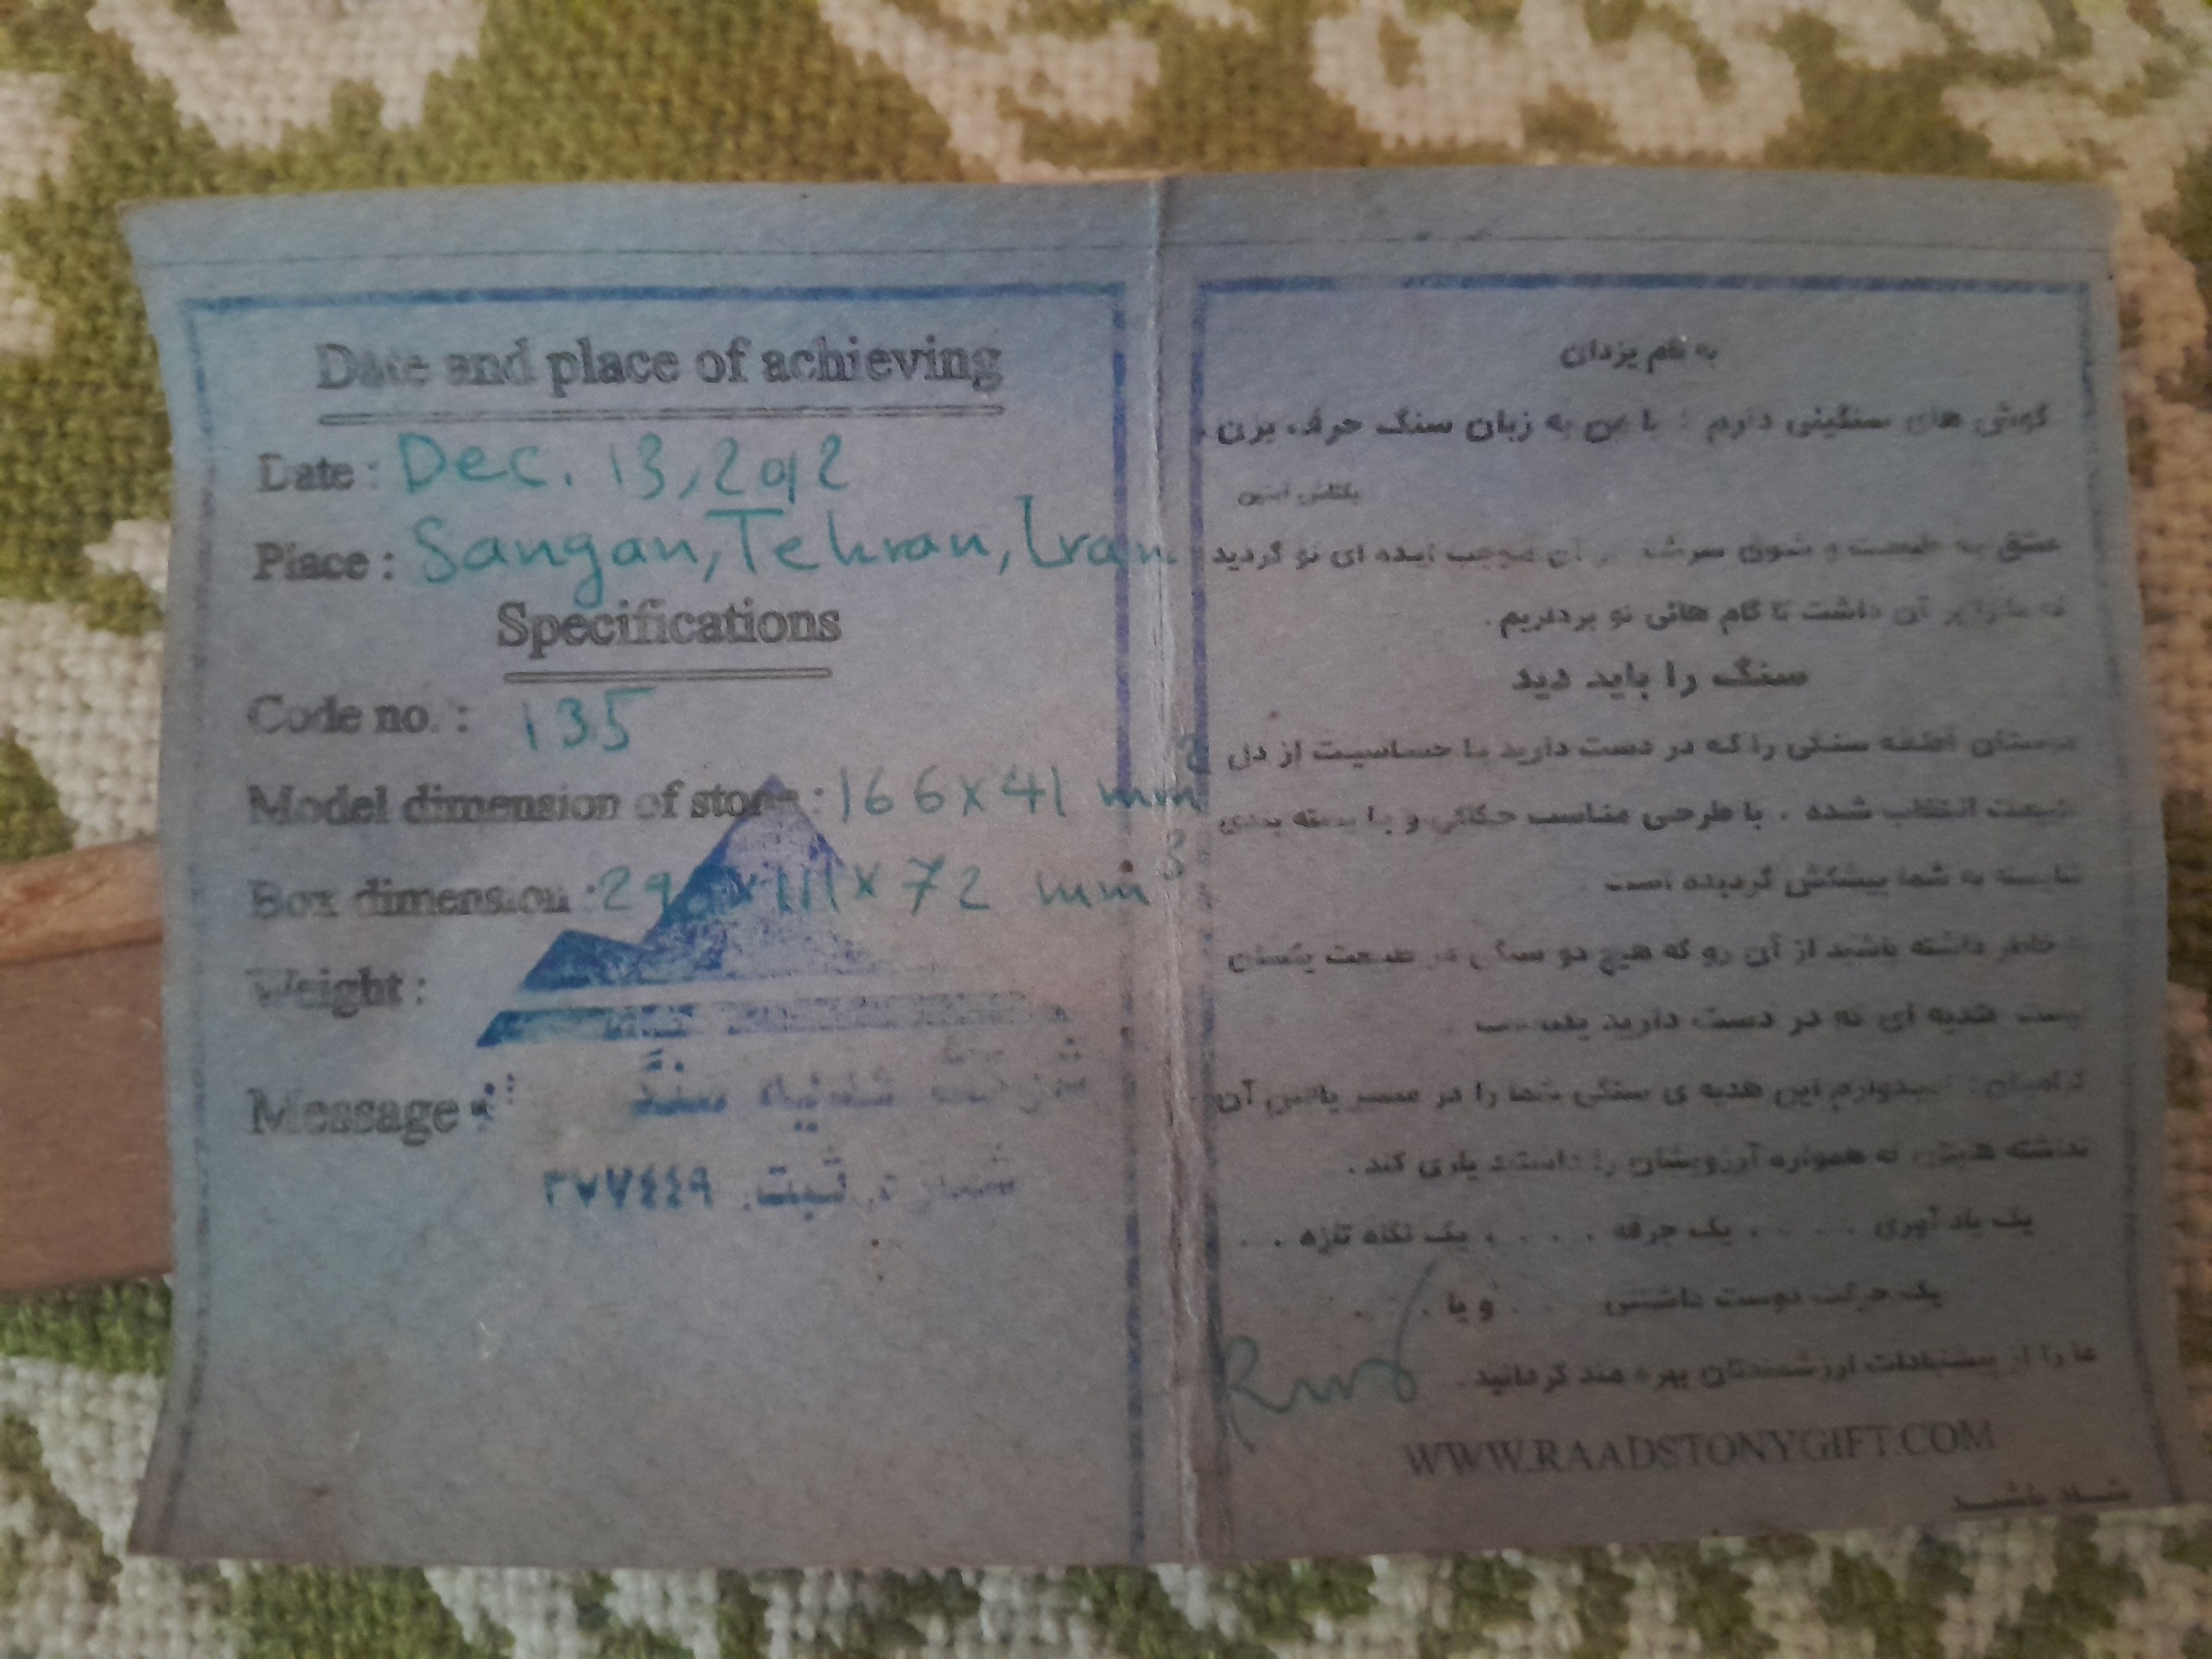 Date and place of achieving
Date : Dec. 13, 2012
Place : Sangan, Tehran, Iran
Specifications
Code no. : 135
Model dimension of stone : 166 x 41 mm²
Box dimension : x 111 x 72 mm³
Weight :
Message :
سنگ
شماره ثبت. ۳۷۷٤٤۹
به نام یزدان
گوش های سنگینی دارم : با من به زبان سنگ حرف بزن .
عشق به طبیعت و شوق سرشار از آن موجب ایده ای نو گردید
که ما را بر آن داشت تا گام هائی نو برداریم.
سنگ را باید دید
دوستان قطعه سنگی را که در دست دارید با حساسیت از دل
طبیعت انتخاب شده ، با طرحی مناسب حکاکی و با بسته بندی
شایسته به شما پیشکش گردیده است
خاطر داشته باشید از آن رو که هیچ دو سنگی در طبیعت یکسان
نیست هدیه ای که در دست دارید
امیدوارم این هدیه ی سنگی شما را در مسیر یافتن آن
نداشته هایتان که همواره آرزویشان را داشتید یاری کند .
یک یاد آوری . . . . ، یک جرقه . . . . ، یک نگاه تازه . .
یک حرکت دوست داشتنی . . . . و یا . . . .
ما را از پیشنهادات ارزشمندتان بهره مند گردانید .
WWW.RAADSTONYGIFT.COM
شاد باشید